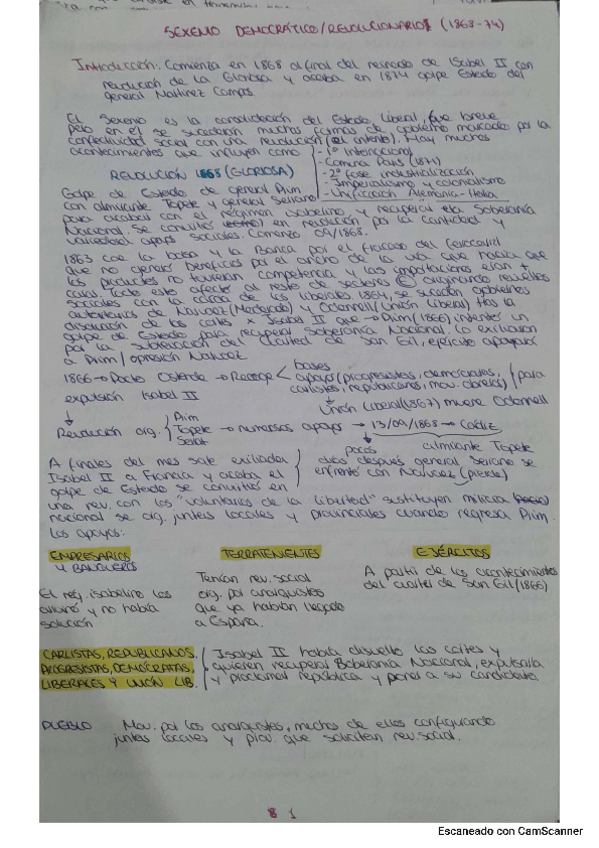 SEXENIO DEMOCRÁTICO/REVOLUCIONARIO (1868-74)
Introducción: Comienza en 1868 al final del reinado de Isabel II con
revolución de la Gloriosa y acaba en 1874 golpe Estado del
general Martínez Campos.
El Sexenio es la consolidación del Estado Liberal, fue breve
pero en el se sucedieron muchas formas de gobierno marcado por la
conflictividad social con una revolución (el intento). Hay muchos
acontecimientos que influyen como
- 1º Internacional
- Comuna París (1871)
- 2º fase industrialización
- Imperialismo y colonialismo
- Unificación Alemania-Italia
REVOLUCIÓN 1868 (GLORIOSA)
Golpe de Estado de general Prim
con almirante Topete y general Serrano
para acabar con el régimen isabelino y recuperar la Soberanía
Nacional. Se convirtió en revolución por la cantidad y
variedad apoyos sociales. Comenzó 09/1868.
1863 cae la bolsa y la Banca por el fracaso del ferrocarril
que no generó beneficios por el ancho de la vía que hacía que
los productos no tuvieran competencia y las importaciones eran +
caras. Todo esto afectó al resto de sectores originando revueltas
sociales con la caída de los liberales 1864, se suceden gobiernos
autoritarios de Narváez (Moderado) y O'donnell (Unión Liberal) Hasta
disolución de las cortes x Isabel II que → Prim (1866) intentar un
golpe de Estado para recuperar Soberanía Nacional. Lo exiliaron
por la sublevación del Cuartel de San Gil, ejército apoyaron
a Prim / opresión Narváez
1866 → Pacto Ostende → Recoge
bases
apoyos (progresistas, demócratas,
carlistas, republicanos, mov. obreros)
para
expulsión Isabel II
Unión Liberal (1867) muere Odonnell
Revolución org.
Prim
Topete
→ numerosos apoyos → 13/09/1868 → Cádiz
pocos
días después general Serrano se
enfrentó con Narváez (pierde)
almirante Topete
A finales del mes sale exiliada
Isabel II a Francia y acaba el
golpe de Estado se convirtió en
una rev. con los "voluntarios de la libertad" sustituyen milicia
nacional se org. juntas locales y provinciales cuando regresa Prim.
Los apoyos:
EMPRESARIOS
Y BANQUEROS
El reg. isabelino los
arruinó y no había
solución
TERRATENIENTES
Temían rev. social
org. por anarquistas
que ya habían llegado
a España.
EJÉRCITOS
A partir de los acontecimientos
del cuartel de San Gil (1866)
CARLISTAS, REPUBLICANOS,
PROGRESISTAS, DEMÓCRATAS,
LIBERALES Y UNIÓN LIB.
Isabel II había disuelto las cortes y
quieren recuperar Soberanía Nacional, expulsarla
y proclamar república y poner a su candidato
PUEBLO
Mov. por los anarquistas, muchos de ellos configurando
juntas locales y prov. que soliciten rev. social.
1
Escaneado con CamScanner